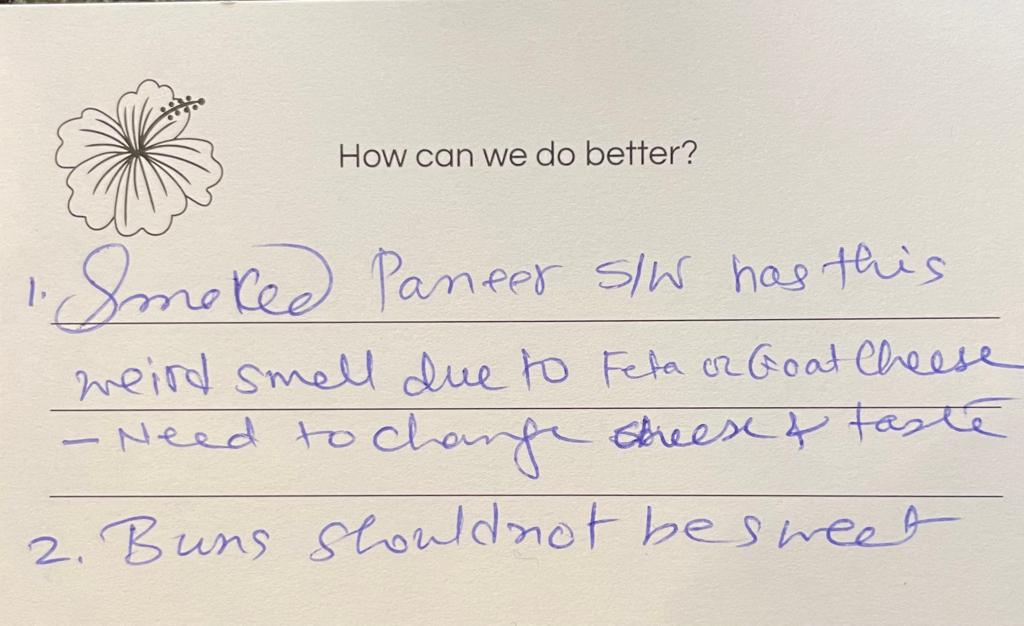 How can we do better?
1. Smoked Paneer S/W has this
weird smell due to Feta or Goat Cheese
- Need to change cheese & taste
2. Buns should not be sweet